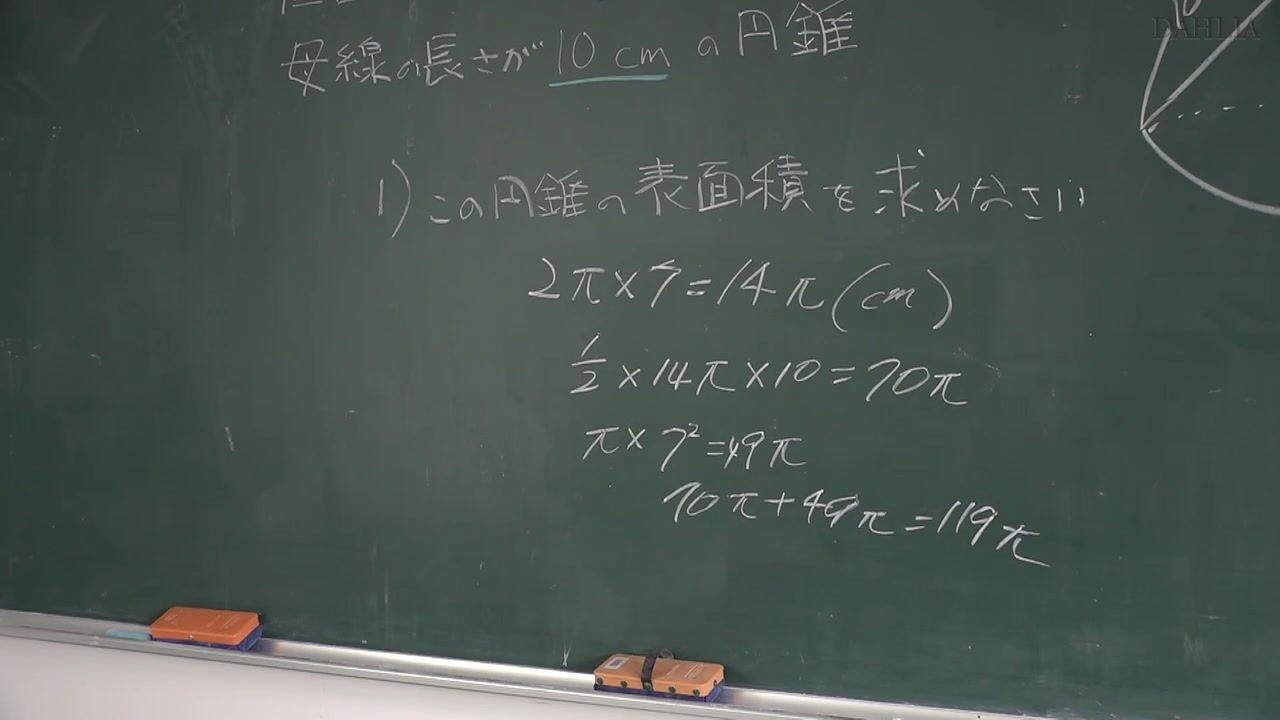 母線の長さが10cmの円錐
10
DAHLIA
1)この円錐の表面積を求めなさい
2π×7=14π(cm)
1/2×14π×10=70π
π×7²=49π
70π+49π=119π